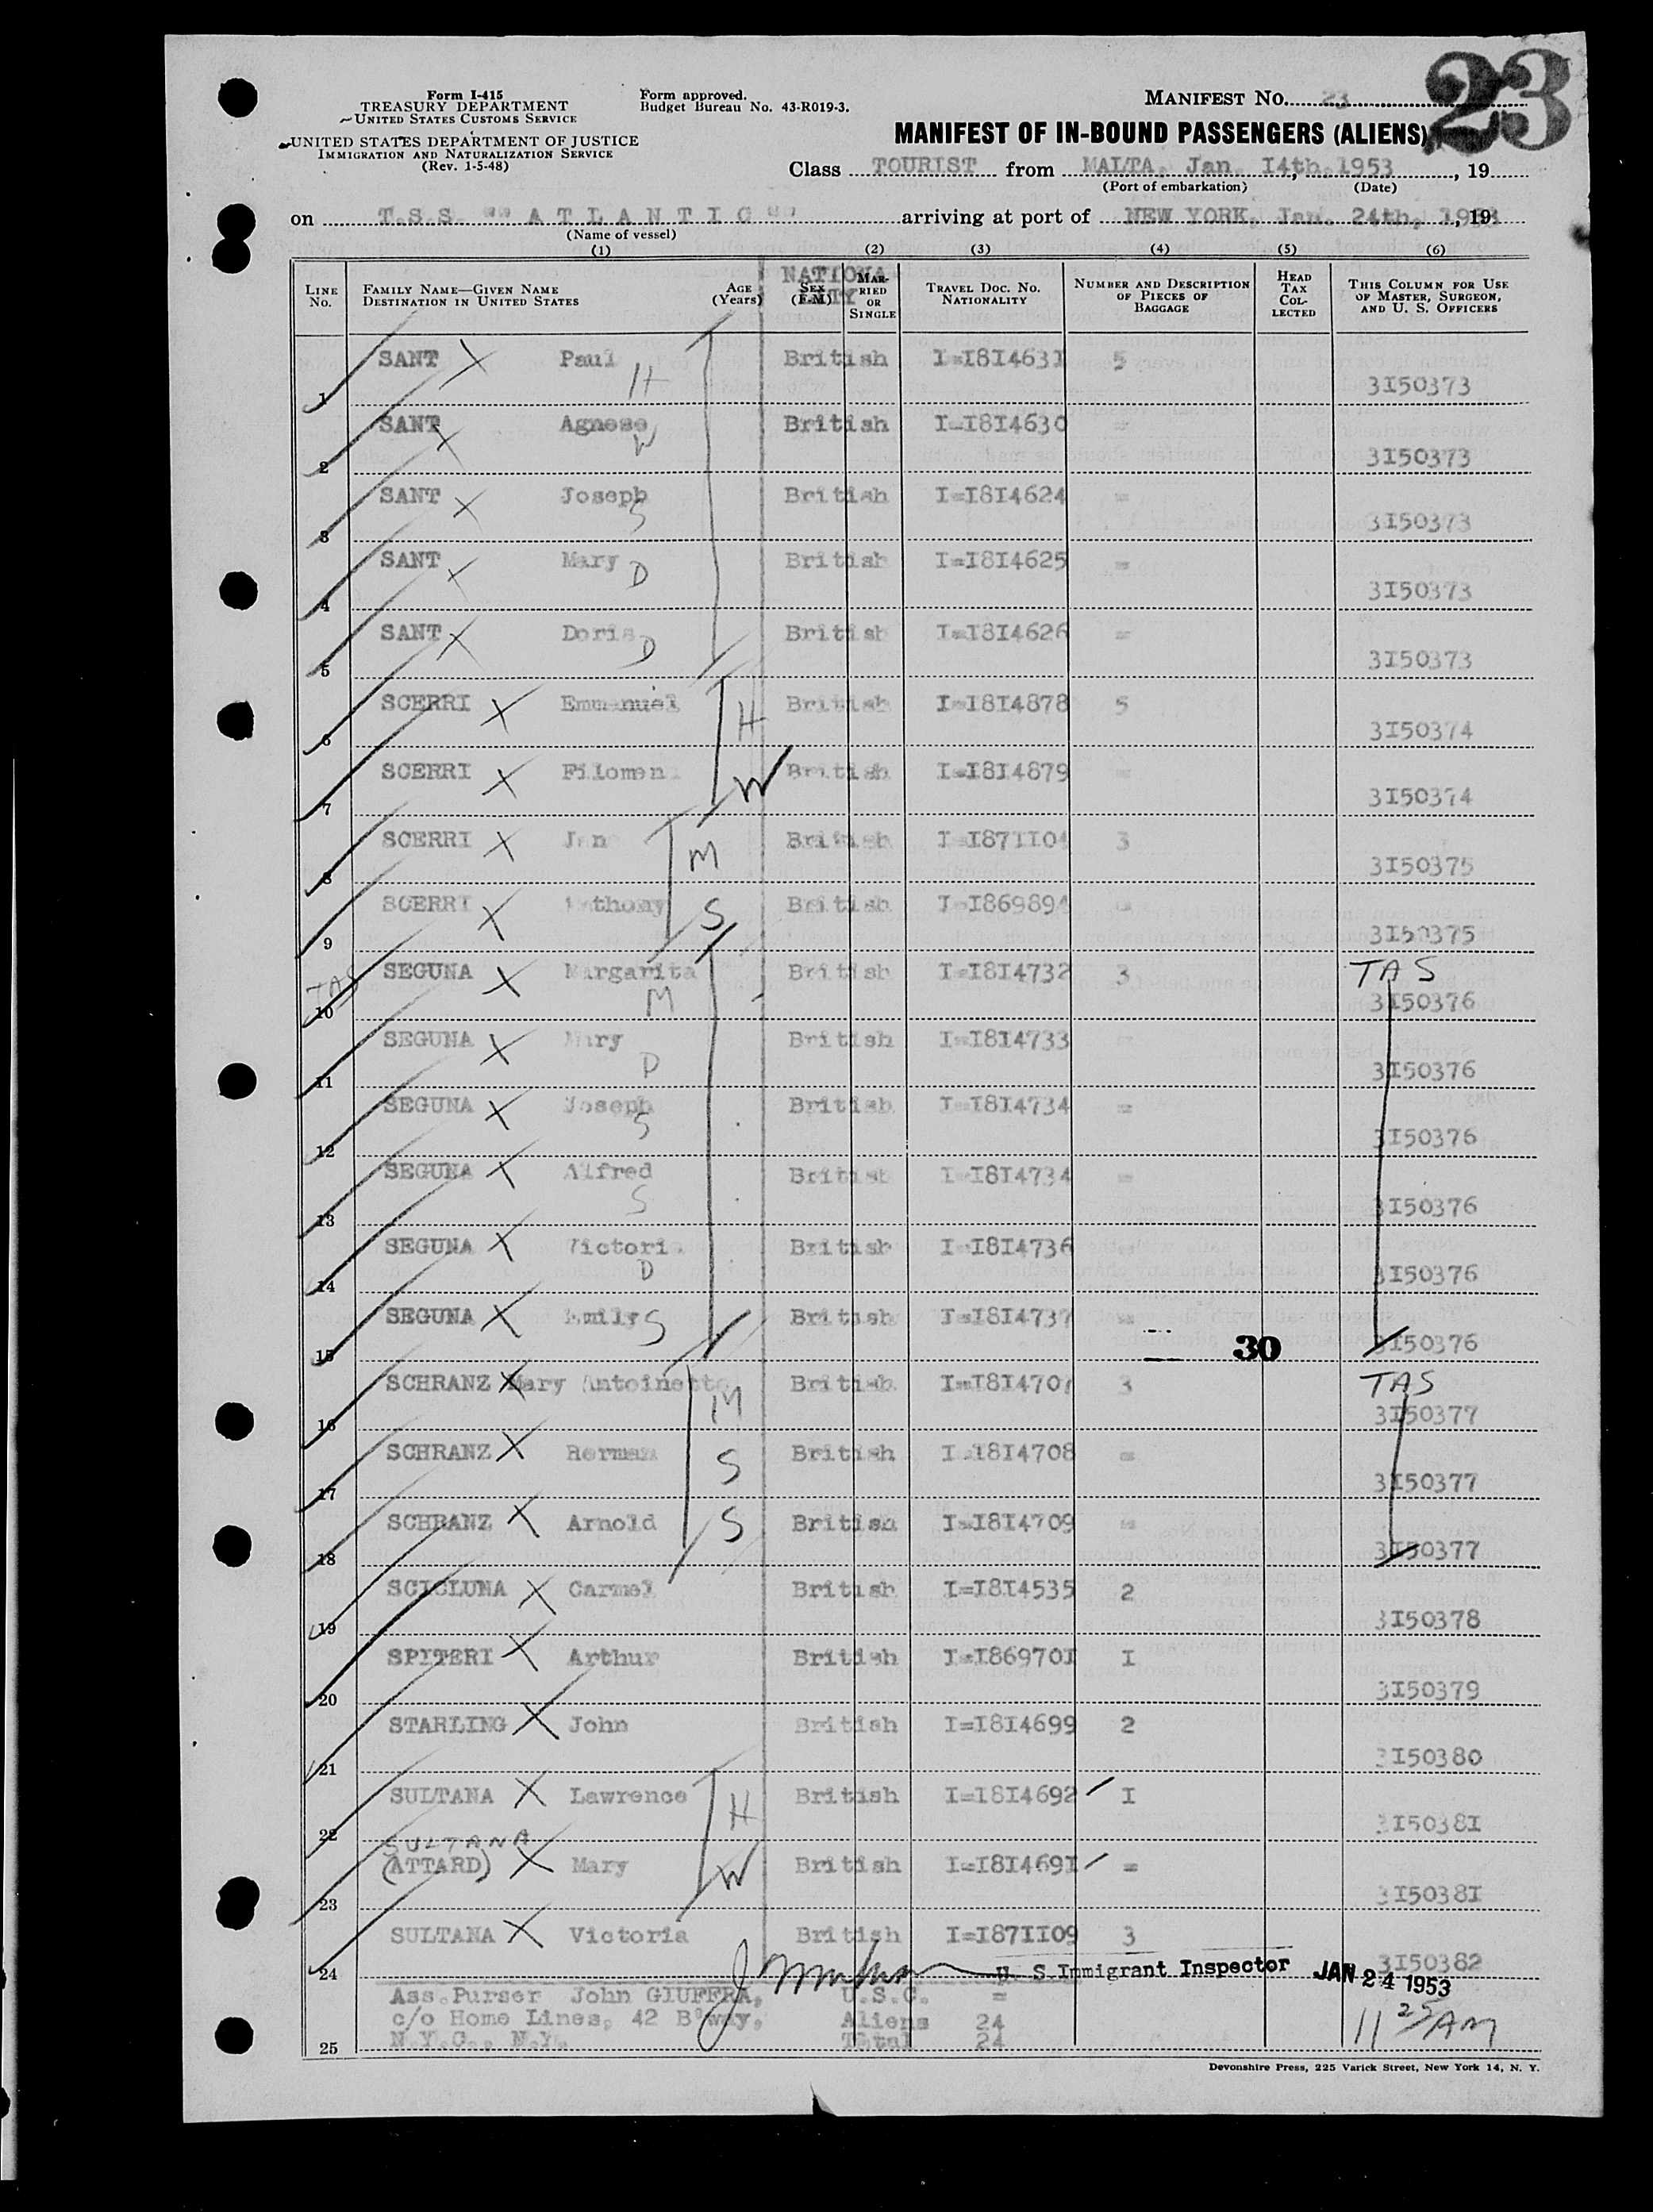 23
Form I-415
TREASURY DEPARTMENT
UNITED STATES CUSTOMS SERVICE
UNITED STATES DEPARTMENT OF JUSTICE
IMMIGRATION AND NATURALIZATION SERVICE
(Rev. 1-5-48)
Form approved.
Budget Bureau No. 43-R019-3.
MANIFEST NO. 23
MANIFEST OF IN-BOUND PASSENGERS (ALIENS)
Class TOURIST from MALTA, Jan. I4th,1953, 19
(Port of embarkation) (Date)
on T.S.S. "" A T L A N T I C "" arriving at port of NEW YORK, Jan. 24th, 1953, 19
(Name of vessel)
(1) (2) (3) (4) (5) (6)
LINE No. FAMILY NAME—GIVEN NAME DESTINATION IN UNITED STATES AGE (Years) SEX (F-M) NATIONALITY MARRIED OR SINGLE TRAVEL DOC. NO. NATIONALITY NUMBER AND DESCRIPTION OF PIECES OF BAGGAGE HEAD TAX COLLECTED THIS COLUMN FOR USE OF MASTER, SURGEON, AND U. S. OFFICERS
1 SANT X Paul H British I=I8I463I 5 3I50373
2 SANT X Agnese W British I=I8I4630 = 3I50373
3 SANT X Joseph S British I=I8I4624 = 3I50373
4 SANT X Mary D British I=I8I4625 = 3I50373
5 SANT X Doris D British I=I8I4626 = 3I50373
6 SCERRI X Emmanuel H British I=I8I4878 5 3I50374
7 SCERRI X Filomen W British I=I8I4879 = 3I50374
8 SCERRI X M British 3 3I50375
9 SCERRI X S British = 3I50375
TAS
10 SEGUNA X Margarita M British I=I8I4732 3 TAS 3I50376
11 SEGUNA X Mary D British I=I8I4733 = 3I50376
12 SEGUNA X Joseph S British I=I8I4734 = 3I50376
13 SEGUNA X Alfred S British I=I8I4734 = 3I50376
14 SEGUNA X Victori D British I=I8I4736 3I50376
15 SEGUNA X Emily S British I=I8I4737 = 30 3I50376
16 SCHRANZ X Mary Antoinette M British 3 TAS 3I50377
17 SCHRANZ X Herman S British I=I8I4708 = 3I50377
18 SCHRANZ X Arnold S British I=I8I4709 = 3I50377
19 SCICLUNA X Carmel British I=I8I4535 2 3I50378
20 SPITERI X Arthur British I=I86970I I 3I50379
21 STARLING X John British I=I8I4699 2 3I50380
22 SULTANA X Lawrence H British I=I8I4692 I 3I5038I
SULTANA
23 (ATTARD) X Mary W British I=I8I469I = 3I5038I
24 SULTANA X Victoria British I=I87II09 3 3I50382
U. S. Immigrant Inspector JAN 24 1953
Ass.Purser John GIUFFRA, U.S.C. =
c/o Home Lines, 42 B'way, Aliens 24
25 N.Y.C., N.Y. Total 24
11 25 AM
Devonshire Press, 225 Varick Street, New York 14, N. Y.